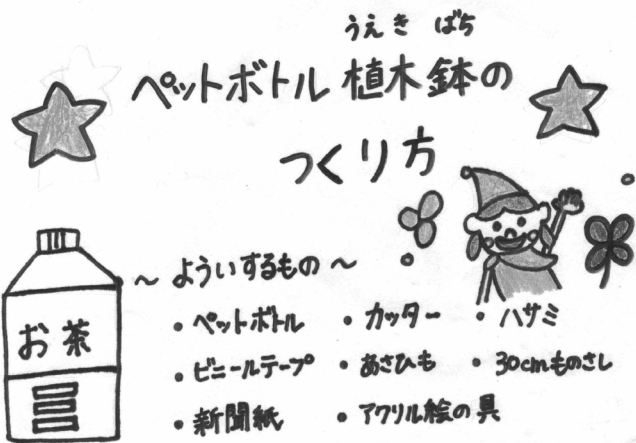 うえきばち
ペットボトル植木鉢の
つくり方
～よういするもの～
・ペットボトル ・カッター ・ハサミ
・ビニールテープ ・あさひも ・30cmものさし
・新聞紙 ・アクリル絵の具
お茶